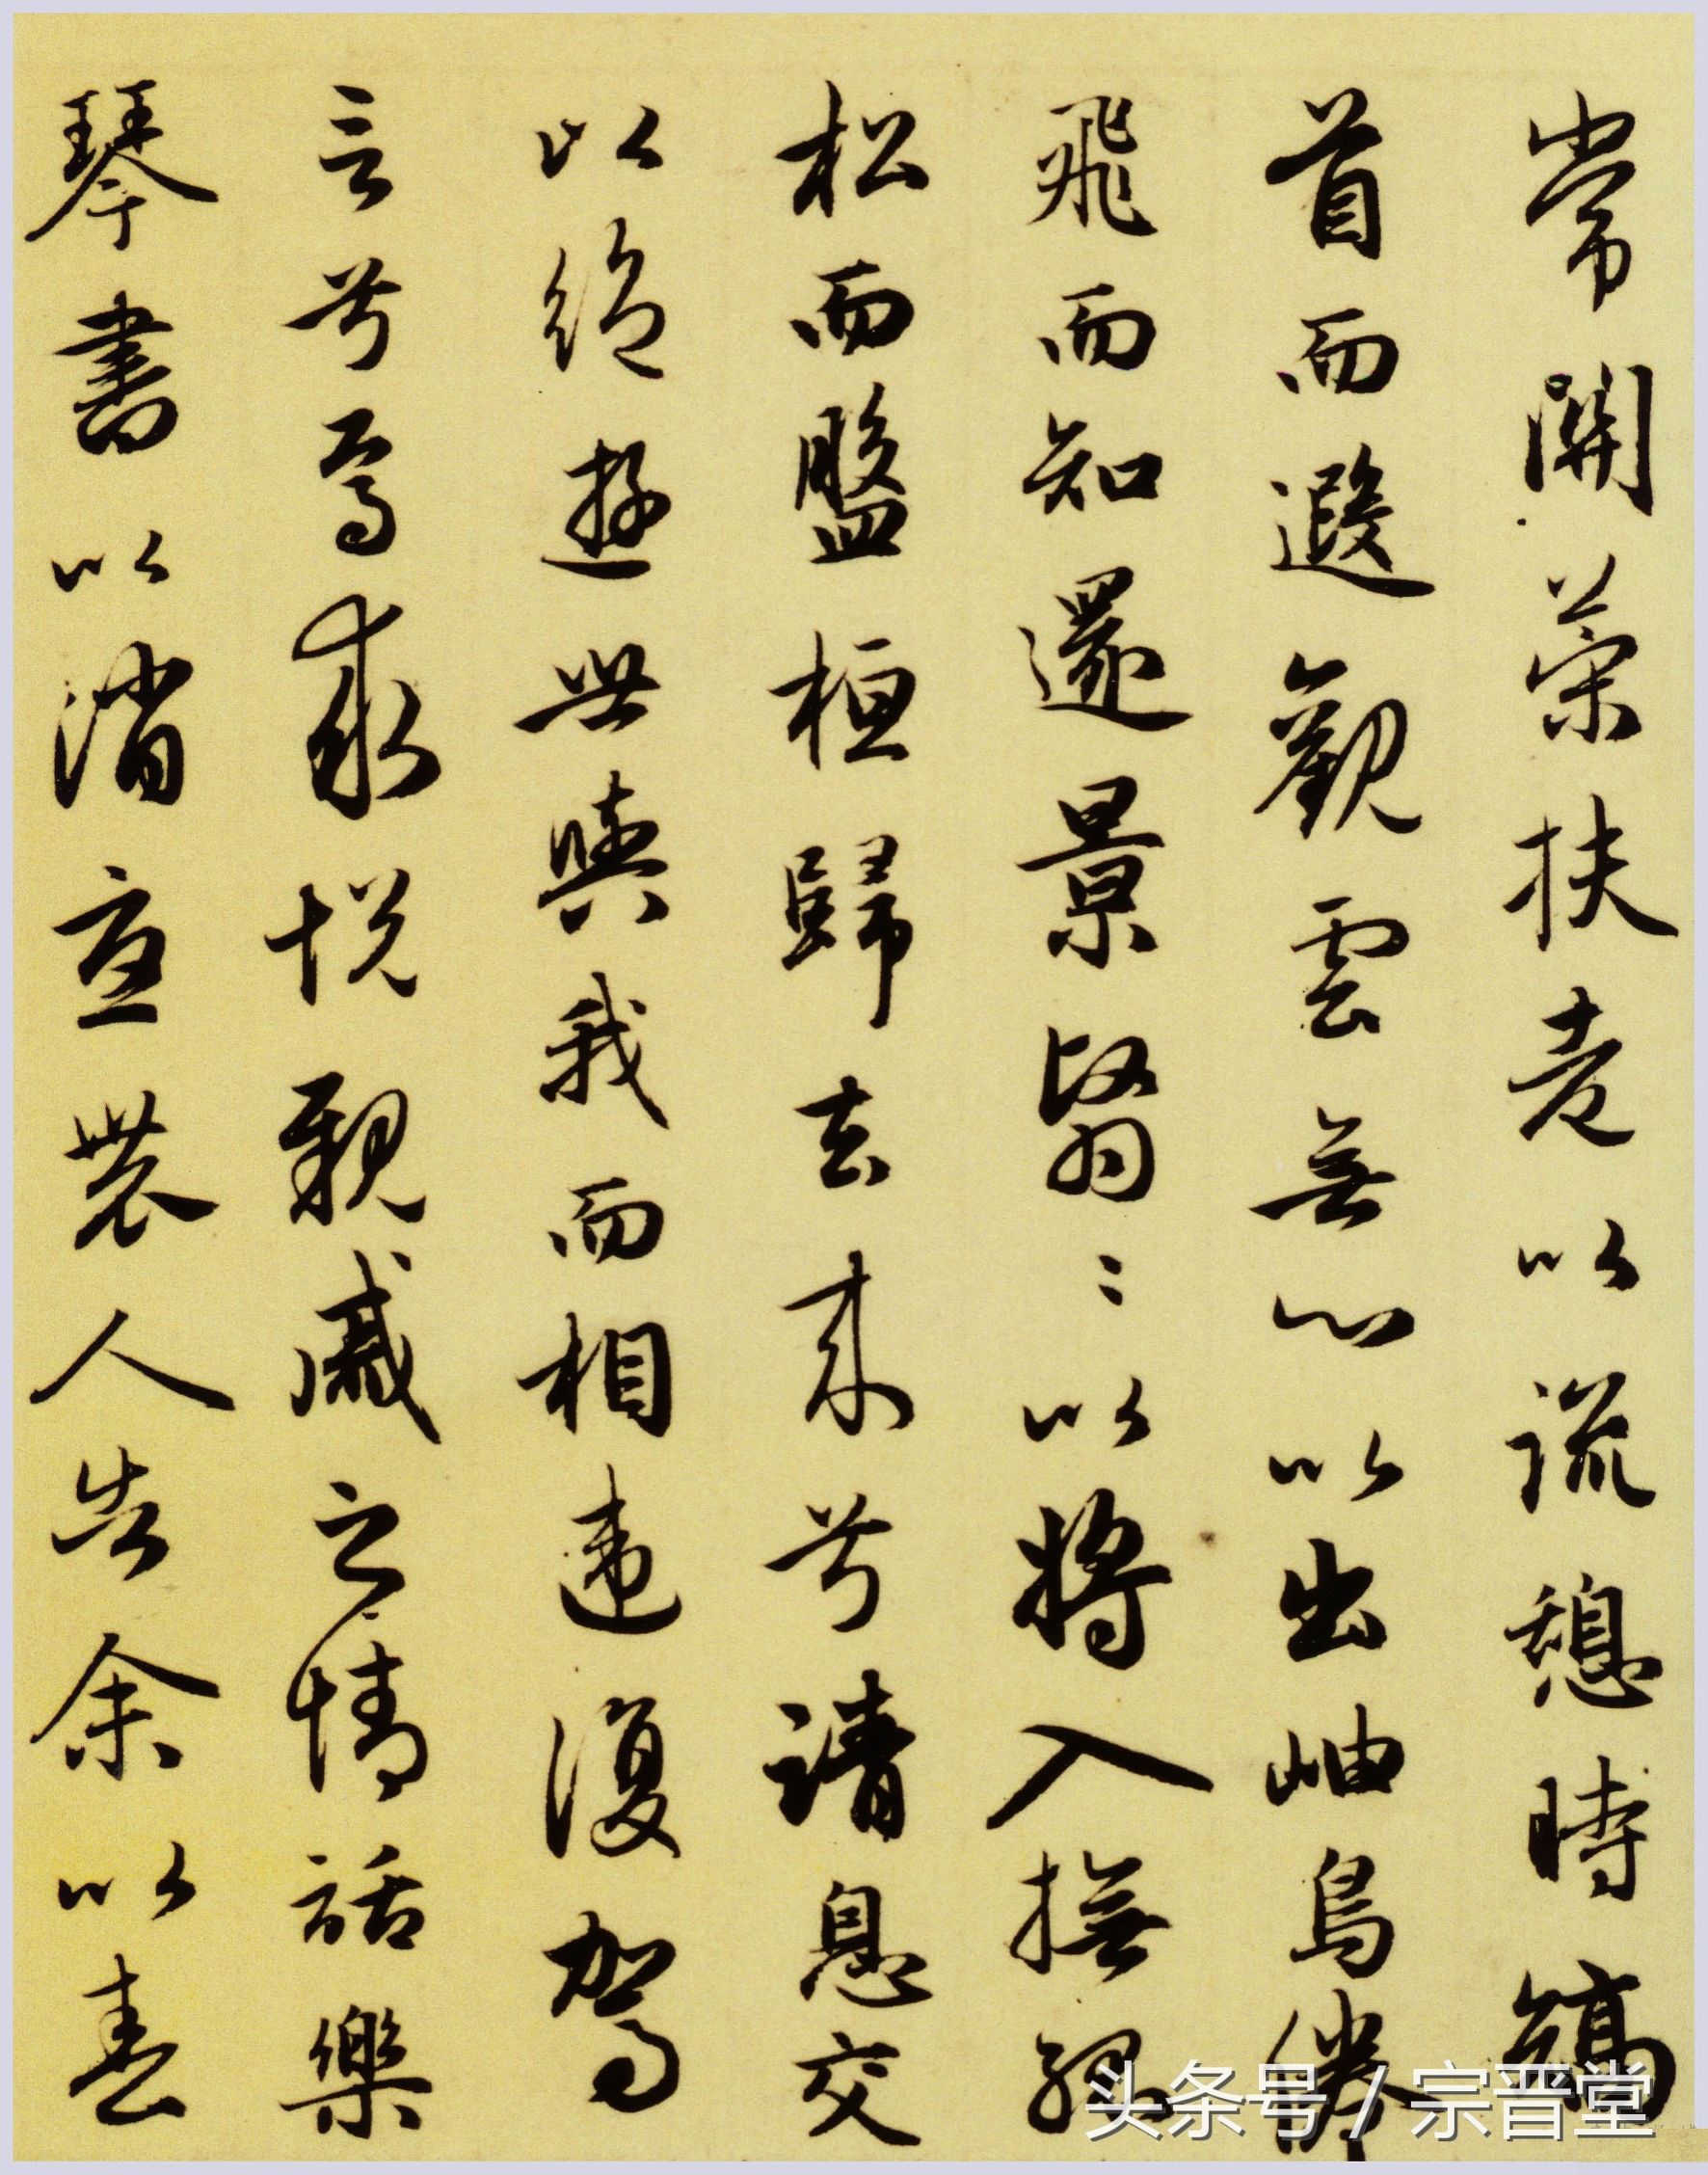 常關策扶老以流憩時矯
首而遐觀雲無心以出岫鳥倦
飛而知還景翳〻以將入撫孤
松而盤桓歸去来兮請息交
以絶遊世與我而相違復駕
言兮焉求悦親戚之情話樂
琴書以消憂農人告余以春
头条号 / 宗晋堂